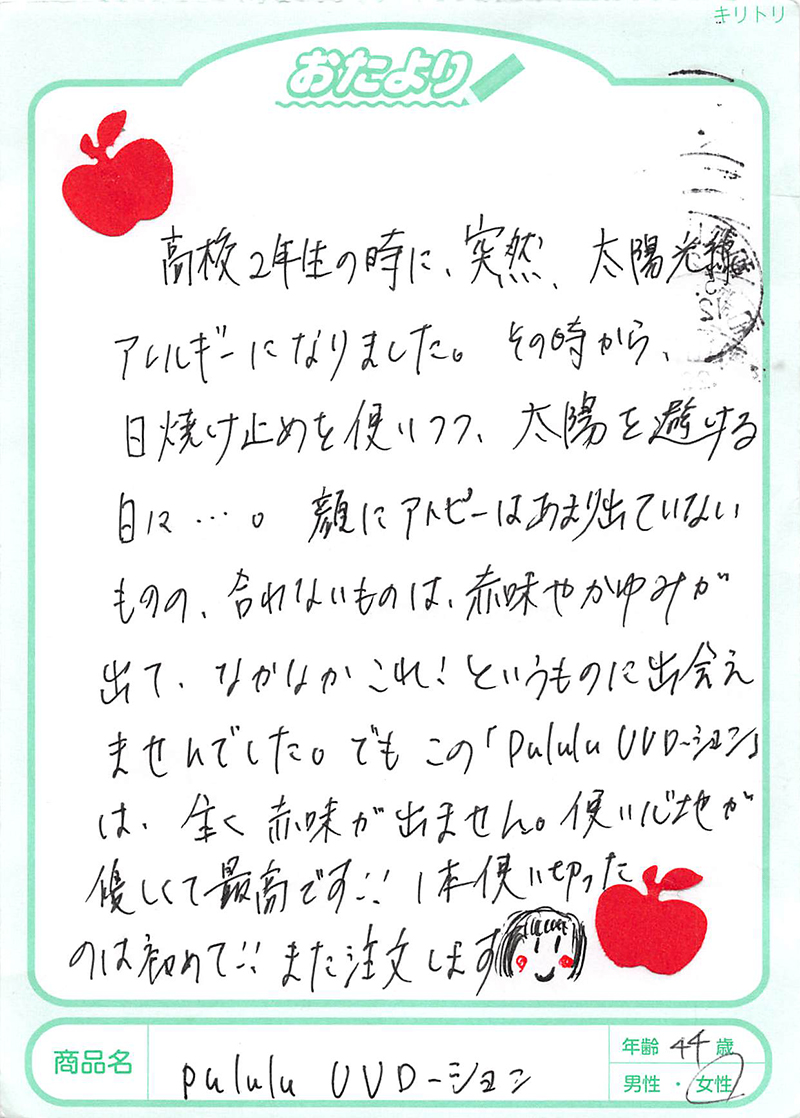 キリトリ
おたより
高校2年生の時に、突然、太陽光線
アレルギーになりました。その時から、
日焼け止めを使いつつ、太陽を避ける
日々…。顔にアトピーはあまり出ていない
ものの、合わないものは、赤味やかゆみが
出て、なかなかこれ!というものに出会え
ませんでした。でもこの「pululu UVローション」
は、全く赤味が出ません。使い心地が
優しくて最高です!! 1本使い切った
のは初めて!! また注文します
商品名 pululu UVローション
年齢 44 歳
男性・女性